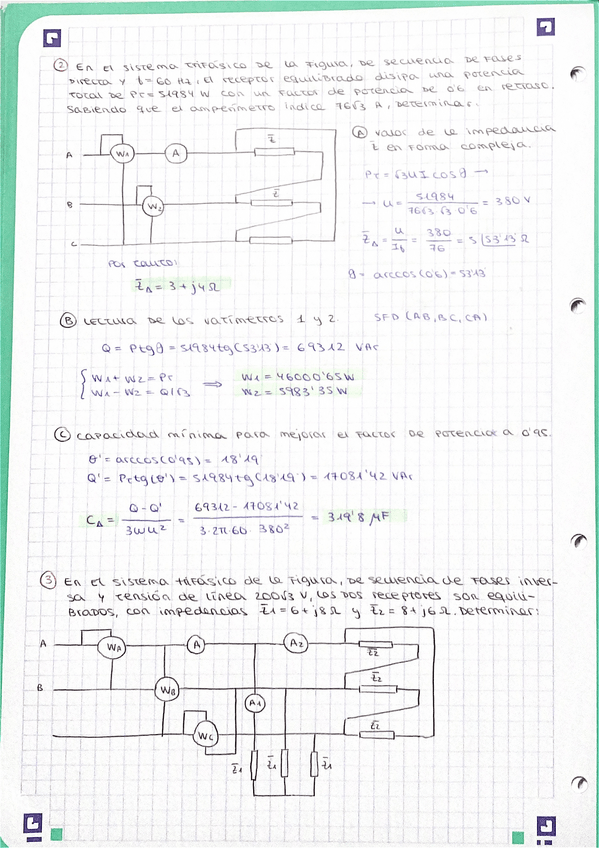 ② En el sistema trifásico de la figura, de secuencia de fases
directa y f=60 Hz, el receptor equilibrado disipa una potencia
total de PT=51984 W con un factor de potencia de 0'6 en retraso.
Sabiendo que el amperímetro indica 76√3 A, determinar.
Ⓐ valor de la impedancia
Z̄ en forma compleja.
A
W1
A
Z̄
B
W2
Z̄
C
PT = √3UI cosθ →
→ U = 51984 / 76√3 √3 0'6 = 380 V
Z̄Δ = U / If = 380 / 76 = 5 |53'13 Ω
Por tanto:
Z̄Δ = 3 + j4 Ω
θ = arccos(0'6) = 53'13
Ⓑ Lectura de los vatímetros 1 y 2.
SFD (AB, BC, CA)
Q = Ptgθ = 51984tg(53'13) = 69312 VAr
W1 + W2 = PT ⟹ W1 = 46000'65 W
W1 - W2 = Q/√3 W2 = 5983'35 W
Ⓒ Capacidad mínima para mejorar el factor de potencia a 0'95.
θ' = arccos(0'95) = 18'19
Q' = PT tg(θ') = 51984 tg(18'19) = 17081'42 VAr
CΔ = Q - Q' / 3ωU² = 69312 - 17081'42 / 3·2π·60· 380² = 319'8 µF
③ En el sistema trifásico de la figura, de secuencia de fases inver-
sa y tensión de línea 200√3 V, los dos receptores son equili-
brados, con impedancias Z̄1 = 6 + j8 Ω y Z̄2 = 8 + j6 Ω. Determinar:
A
WA
A
A2
Z̄2
B
WB
A1
Z̄2
WC
Z̄2
Z̄1
Z̄1
Z̄1